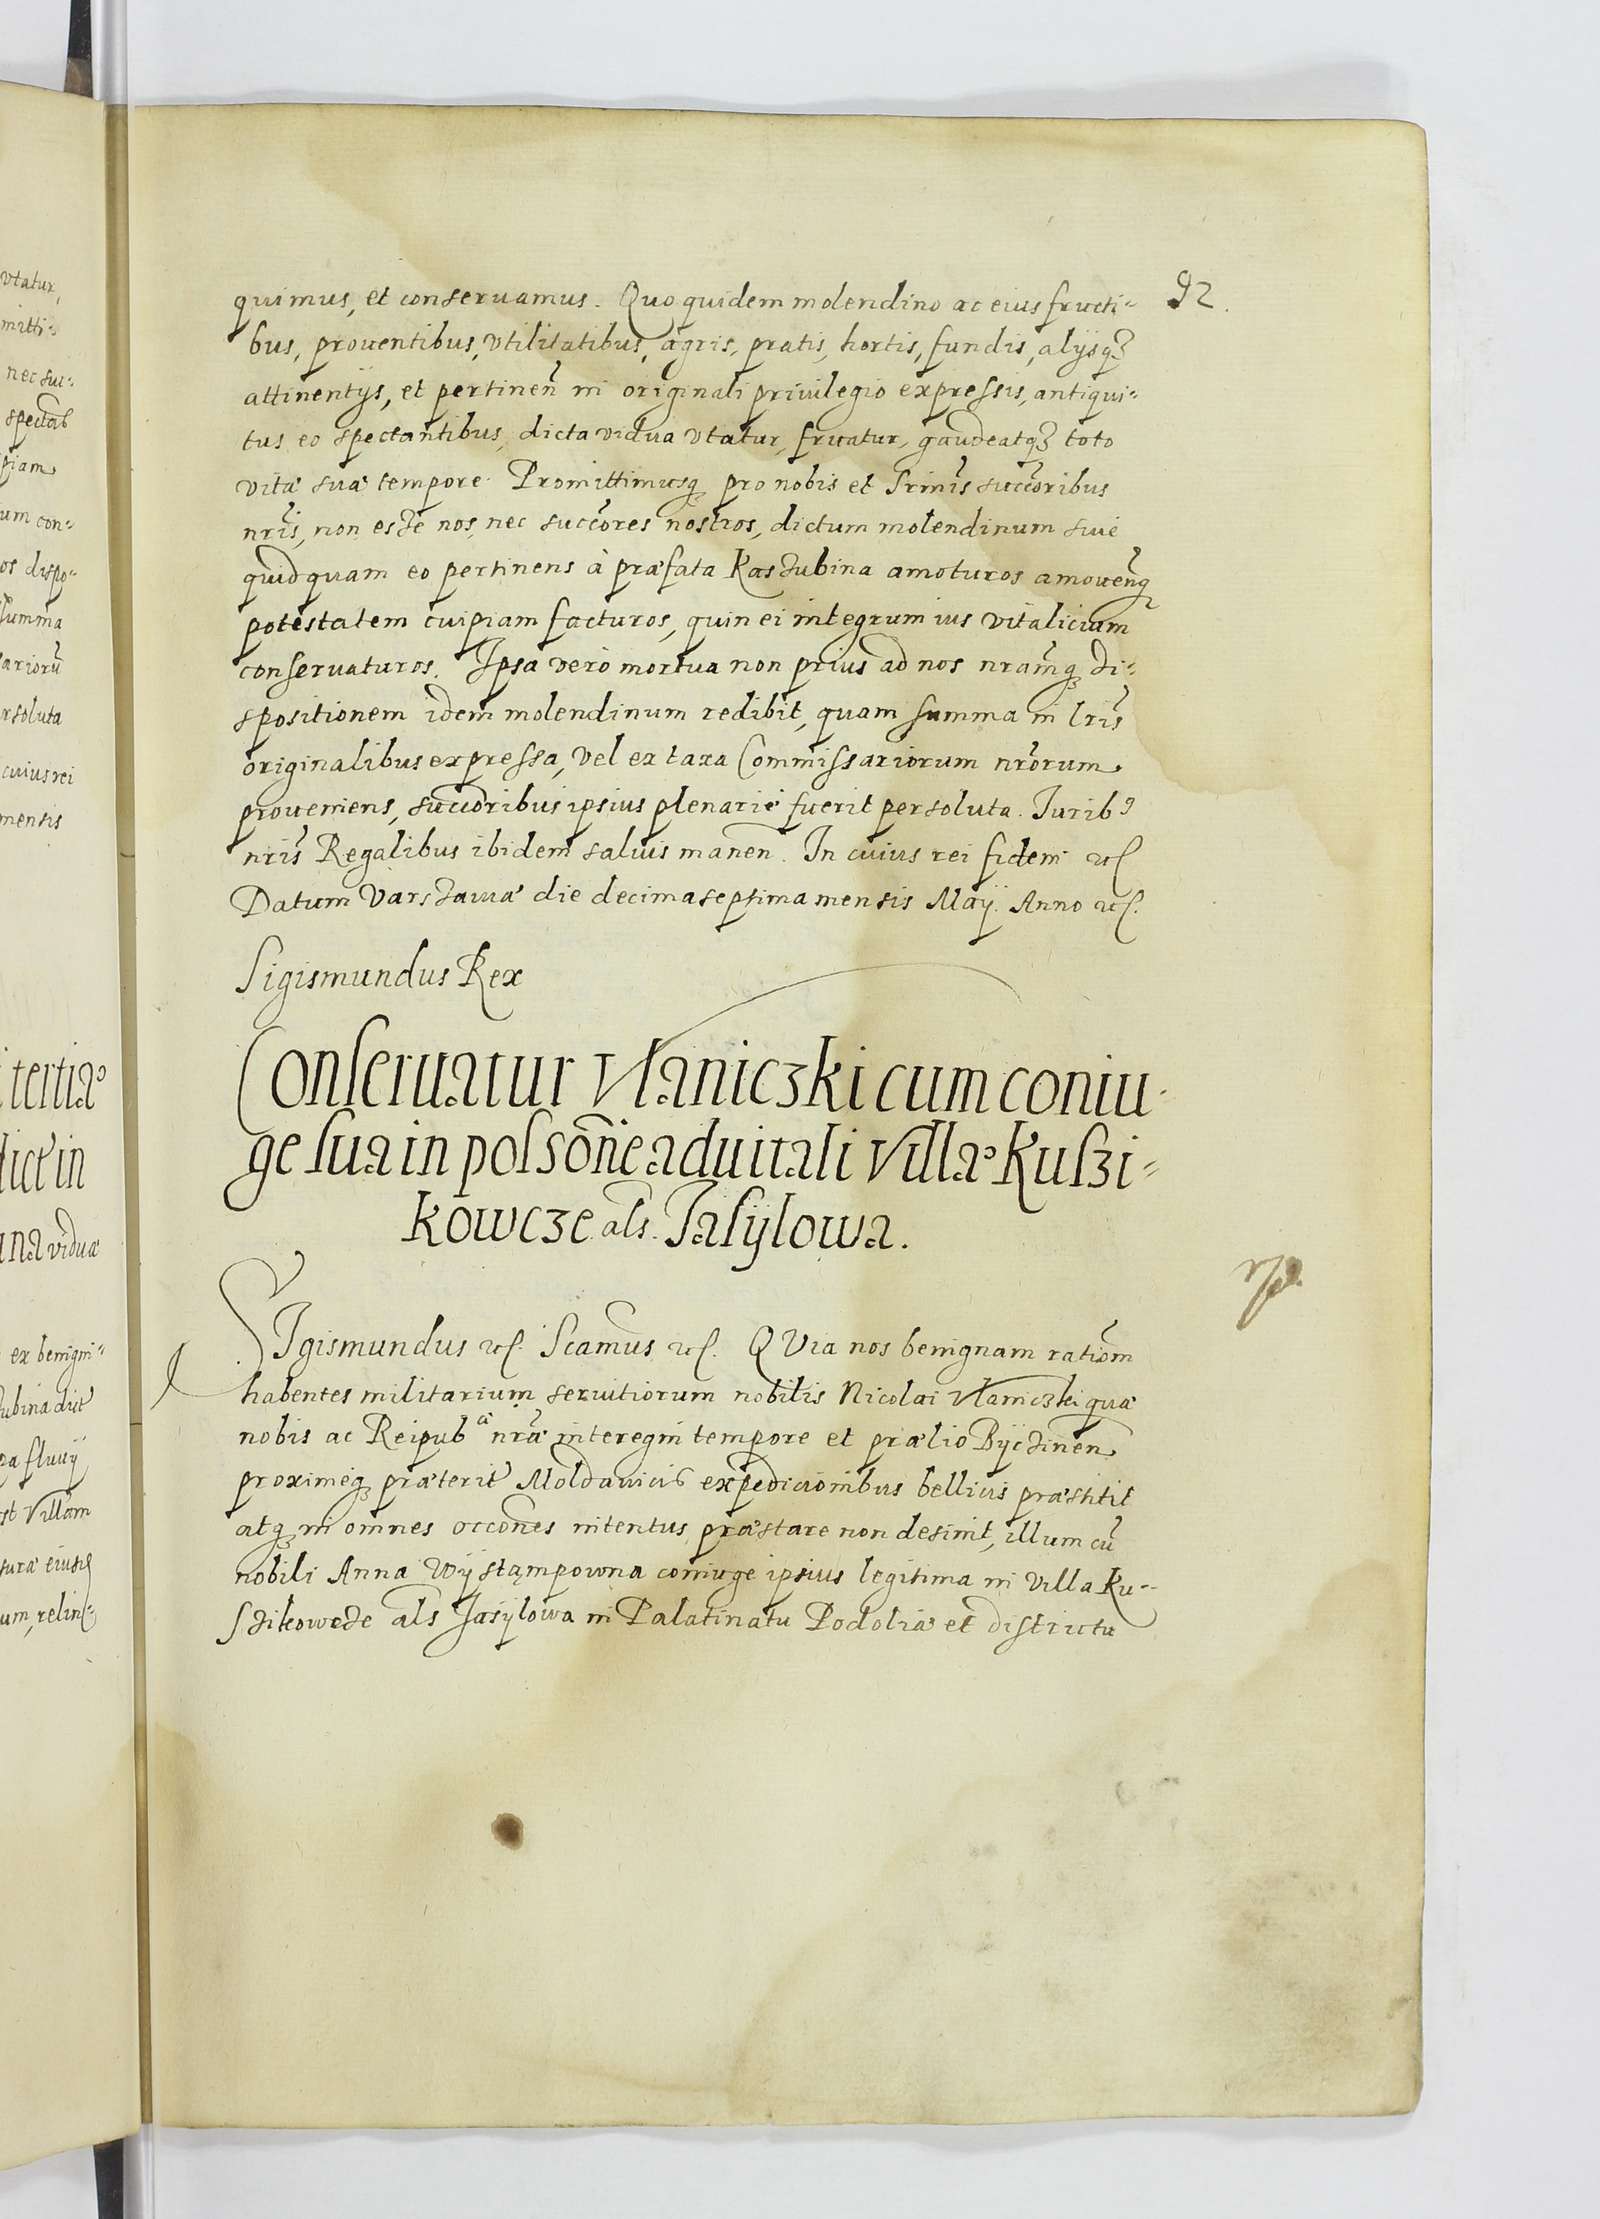 92.
quimus, et conseruamus. Quo quidem molendino ac eius fructi-
bus, prouentibus, vtilitatibus, agris, pratis, hortis, fundis, alijsqꝫ
attinentijs, et pertinen̄ in originali priuilegio expressis, antiqui-
tus eo spectantibus, dicta vidua vtatur, fruatur, gaudeatqꝫ toto
vitæ suæ tempore. Promittimusqꝫ pro nobis et Srmīs succōribus
nrīs, non esse nos, nec succōres nostros, dictum molendinum siue
quidquam eo pertinens à præfata Kaszubina amoturos amouen̄qꝫ
potestatem cuipiam facturos, quin ei integrum ius vitalicium
conseruaturos. Ipsa verò mortua non prius ad nos nrāmqꝫ di-
spositionem idem molendinum redibit, quam summa in lrīs
originalibus expressa, vel ex taxa Commissariorum nrōrum
proueniens, succōribus ipsius plenariè fuerit persoluta. Juribꝯ
nrīs Regalibus ibidem saluis manen̄. In cuius rei fidem etc̄
Datum Varszauiæ die decimaseptima mensis Maij. Anno etc̄.
Sigismundus Rex
Conseruatur Vlaniczki cum coniu-
ge sua in possōne aduitali Villæ Kuszi-
kowcze als. Jasÿlowa.
SIgismundus etc̄. Scāmus etc̄. QVia nos benignam ratiōm
habentes militarium seruitiorum nobilis Nicolai Vlaniczki quæ
nobis ac Reipubᶜᵃ nrǣ interegni tempore et prælio Byczinen̄
proximeqꝫ præterit̄ Moldauicis expedicionibus bellicis præstitit
atqꝫ in omnes occōnes intentus præstare non desinit, illum cū
nobili Anna Wÿstąmpowna coniuge ipsius legitima in villa Ku-
szikowcze als Jasÿlowa in Palatinatu Podoliæ et districtu